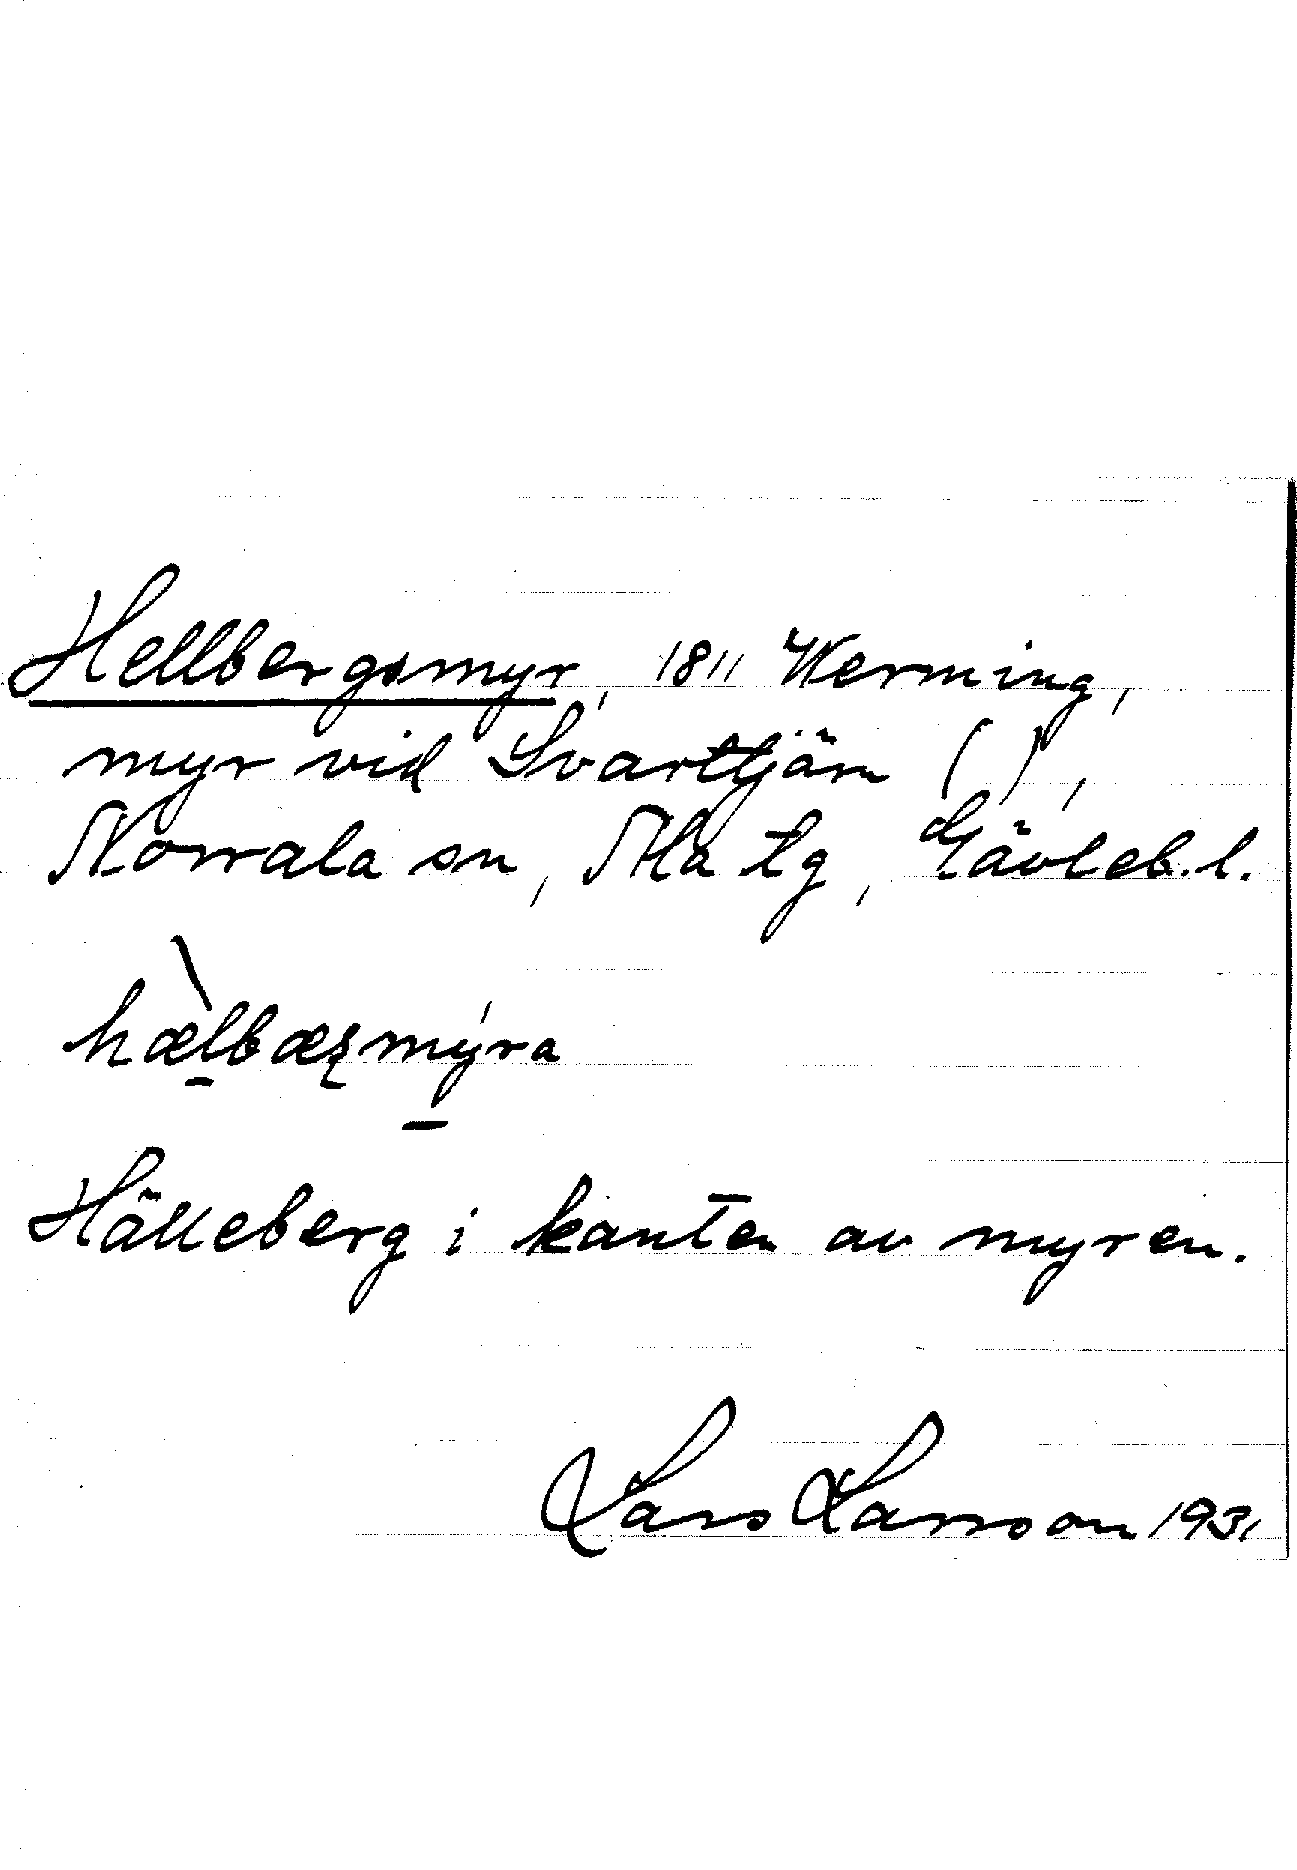 Hellbergsmyr, 1811 Werming,
myr vid Svarttjärn ( ),
Norrala sn, Ala tg, Gävleb.l.
hæ̀lbæʂmýra
Hälleberg i kanten av myren.
Lars Larsson 1931